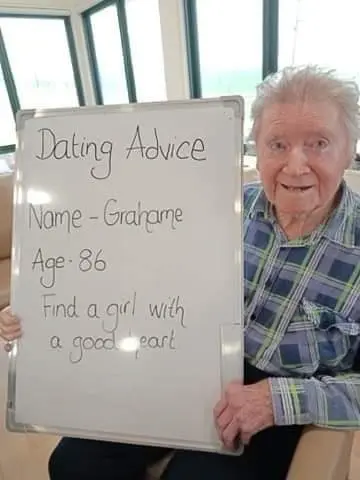 Dating Advice
Name - Grahame
Age - 86
Find a girl with
a good heart